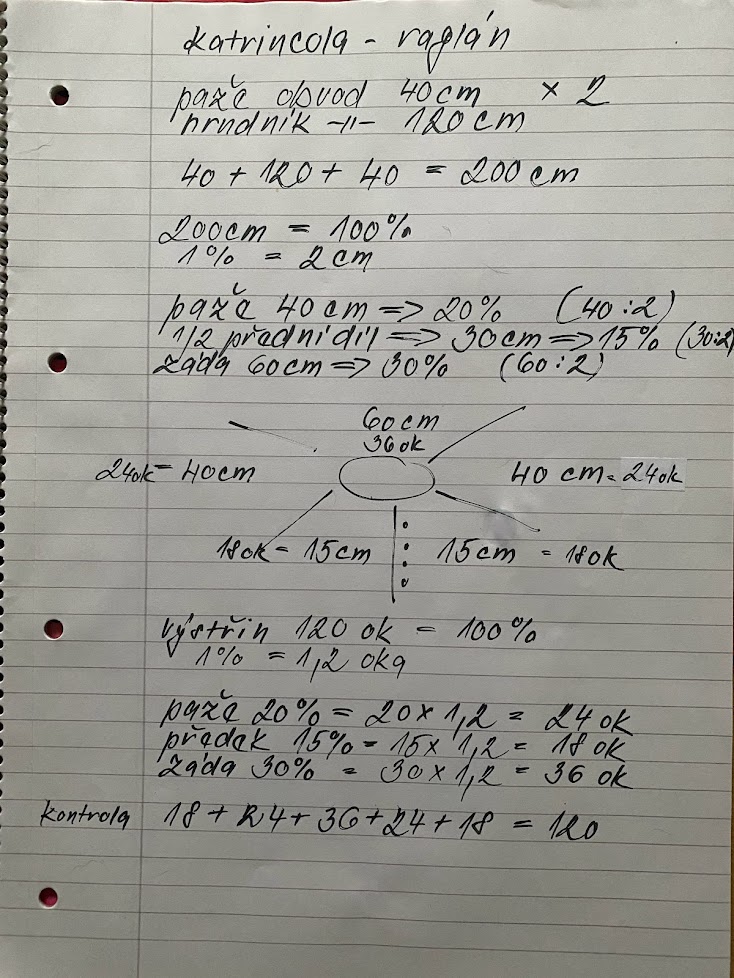 katrincola - raglán
paže obvod 40cm × 2
hrudník -ıı- 120cm
40 + 120 + 40 = 200cm
200cm = 100%
1% = 2cm
paže 40cm => 20% (40:2)
1/2 přední díl => 30cm => 15% (30:2)
záda 60cm => 30% (60:2)
60cm
36ok
24ok = 40cm
40 cm = 24ok
18ok = 15cm
15cm = 18ok
výstřih 120 ok = 100%
1% = 1,2 oka
paže 20% = 20 × 1,2 = 24 ok
předek 15% = 15 × 1,2 = 18 ok
záda 30% = 30 × 1,2 = 36 ok
kontrola 18 + 24 + 36 + 24 + 18 = 120